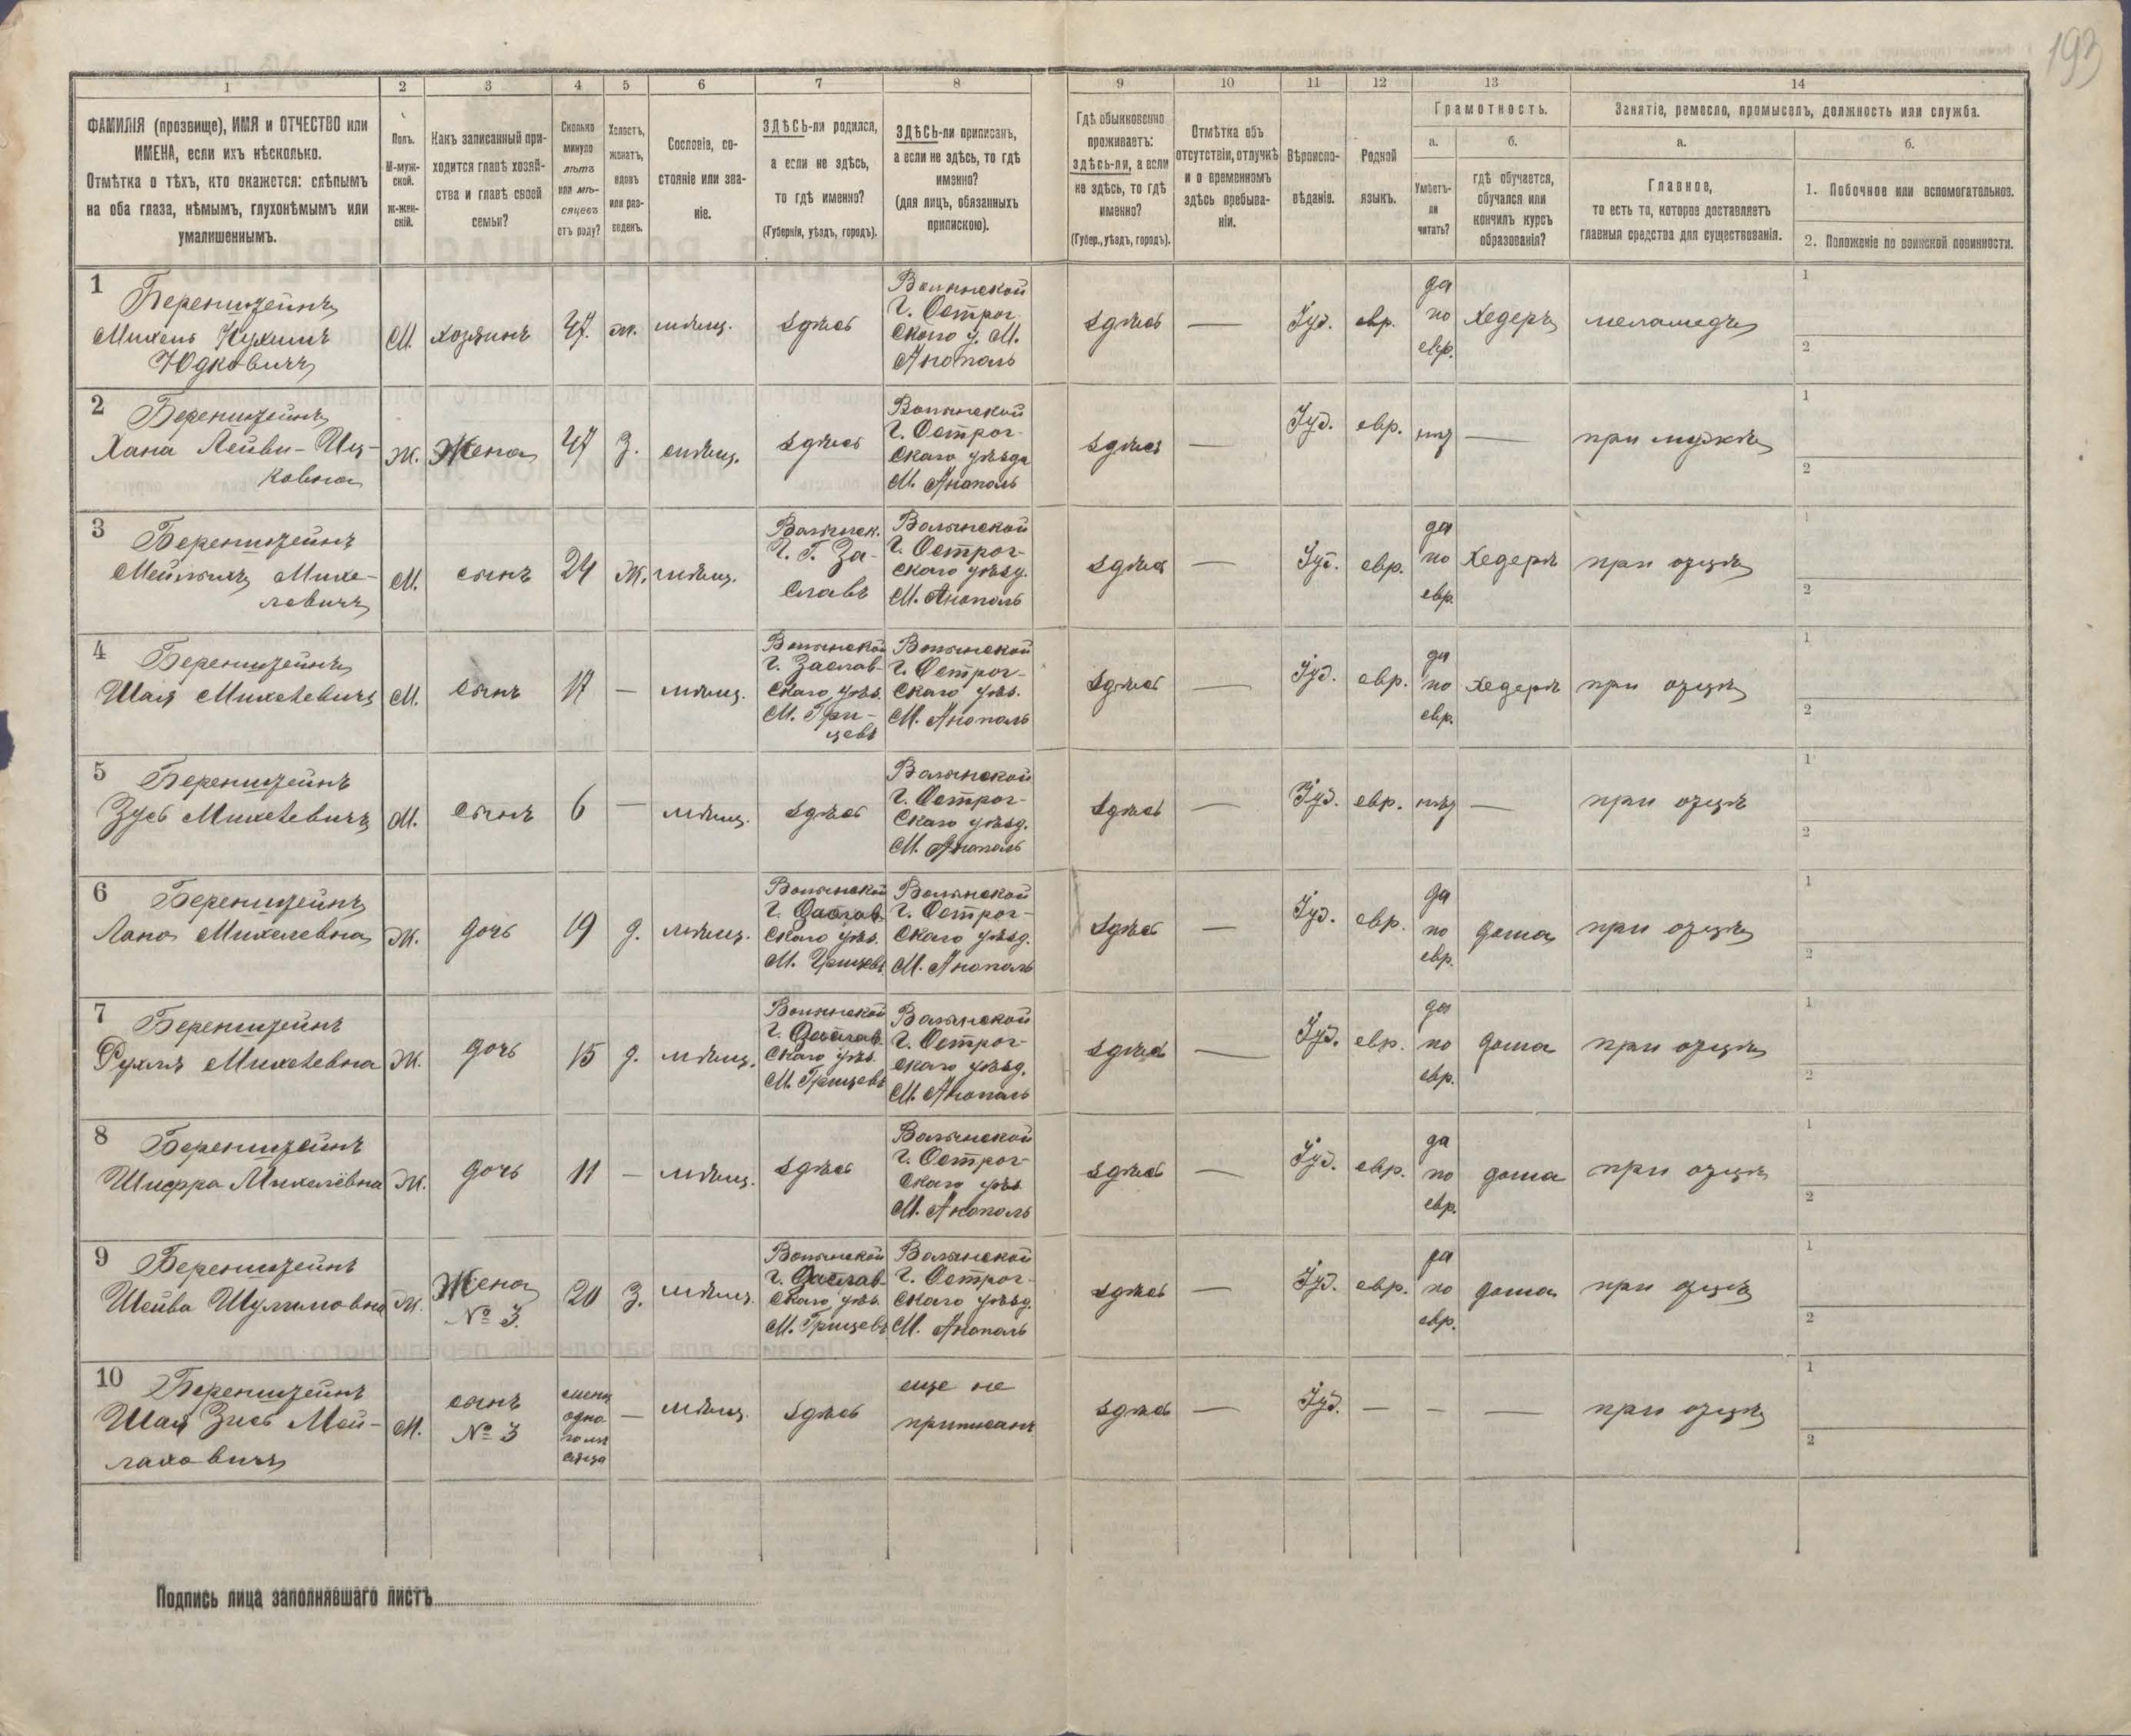 193
1 2 3 4 5 6 7 8 9 10 11 12 13 14
ФАМИЛІЯ (прозвище), ИМЯ и ОТЧЕСТВО или
ИМЕНА, если ихъ нѣсколько.
Отмѣтка о тѣхъ, кто окажется: слѣпымъ
на оба глаза, нѣмымъ, глухонѣмымъ или
умалишеннымъ.
Полъ.
М-муж-
ской.
Ж-жен-
скій.
Какъ записанный при-
ходится главѣ хозяй-
ства и главѣ своей
семьи?
Сколько
минуло
лѣтъ
или мѣ-
сяцевъ
отъ роду?
Холостъ,
женатъ,
вдовъ
или раз-
веденъ.
Сословіе, со-
стояніе или зва-
ніе.
ЗДѢСЬ-ли родился,
а если не здѣсь,
то гдѣ именно?
(Губернія, уѣздъ, городъ).
ЗДѢСЬ-ли приписанъ,
а если не здѣсь, то гдѣ
именно?
(для лицъ, обязанныхъ
припискою).
Гдѣ обыкновенно
проживаетъ:
здѣсь-ли, а если
не здѣсь, то гдѣ
именно?
(Губер., уѣздъ, городъ).
Отмѣтка объ
отсутствіи, отлучкѣ
и о временномъ
здѣсь пребыва-
ніи.
Вѣроиспо-
вѣданіе.
Родной
языкъ.
Грамотность.
а.
Умѣетъ-
ли
читать?
б.
гдѣ обучается,
обучался или
кончилъ курсъ
образованія?
Занятіе, ремесло, промыселъ, должность или служба.
а.
Главное,
то есть то, которое доставляетъ
главныя средства для существованія.
б.
1. Побочное или вспомогательное.
2. Положеніе по воинской повинности.
1
Беренштейнъ
Михель Нухимъ
Юдковичъ
М.
хозяинъ
47.
ж.
мѣщ.
здѣсь
Волынской
г. Острог
скаго у. М.
Анополь
здѣсь
—
Іуд.
евр.
да
по
евр.
хедеръ
меламедъ
1
2
2
Беренштейнъ
Хана Лейви-Иц-
ковна
Ж.
Жена
47
З.
мѣщ.
здѣсь
Волынской
г. Острог-
скаго уѣзда
М. Анополь
здѣсь
—
Іуд.
евр.
нѣт
—
при мужѣ
1
2
3
Беренштейнъ
Мейлыхъ Михе-
левичъ
М.
сынъ
24
Ж.
мѣщ.
Волынск.
г. Г. За-
славъ
Волынской
г. Острог-
скаго уѣзд.
М. Анополь
здѣсь
—
Іуд.
евр.
да
по
евр.
хедеръ
при отцѣ
1
2
4
Беренштейнъ
Шая Михелевичъ
М.
сынъ
17
—
мѣщ.
Волынской
г. Заслав-
скаго уѣз.
М. Гри-
цевъ
Волынской
г. Острог-
скаго уѣз.
М. Анополь
здѣсь
—
Іуд.
евр.
да
по
евр.
хедеръ
при отцѣ
1
2
5
Беренштейнъ
Зусь Михелевичъ
М.
сынъ
6
—
мѣщ.
здѣсь
Волынской
г. Острог-
скаго уѣзд.
М. Анополь
здѣсь
—
Іуд.
евр.
нѣт
—
при отцѣ
1
2
6
Беренштейнъ
Лана Михелевна
Ж.
дочь
19
д.
мѣщ.
Волынской
г. Заслав
скаго уѣз.
М. Грицевъ
Волынской
г. Острог-
скаго уѣзд.
М. Анополь
здѣсь
—
Іуд.
евр.
да
по
евр.
дома
при отцѣ
1
2
7
Беренштейнъ
Рухля Михелевна
Ж.
дочь
15
д.
мѣщ.
Волынской
г. Заслав
скаго уѣз.
М. Грицевъ
Волынской
г. Острог-
скаго уѣзд.
М. Анополь
здѣсь
—
Іуд.
евр.
да
по
евр.
дома
при отцѣ
1
2
8
Беренштейнъ
Шифра Михелевна
Ж.
дочь
11
—
мѣщ.
здѣсь
Волынской
г. Острог-
скаго уѣз.
М. Анополь
здѣсь
—
Іуд.
евр.
да
по
евр.
дома
при отцѣ
1
2
9
Беренштейнъ
Шейва Шулимовна
Ж.
Жена
№ 3.
20
З.
мѣщ.
Волынской
г. Заслав-
скаго уѣз.
М. Грицевъ
Волынской
г. Острог-
скаго уѣзд.
М. Анополь
здѣсь
—
Іуд.
евр.
да
по
евр.
дома
при отцѣ
1
2
10
Беренштейнъ
Шая Зись Мей-
лаховичъ
М.
сынъ
№ 3
менѣ
одно
го мѣ
сяца
—
мѣщ.
здѣсь
еще не
приписанъ
здѣсь
—
Іуд.
—
—
—
при отцѣ
1
2
Подпись лица заполнявшаго листъ